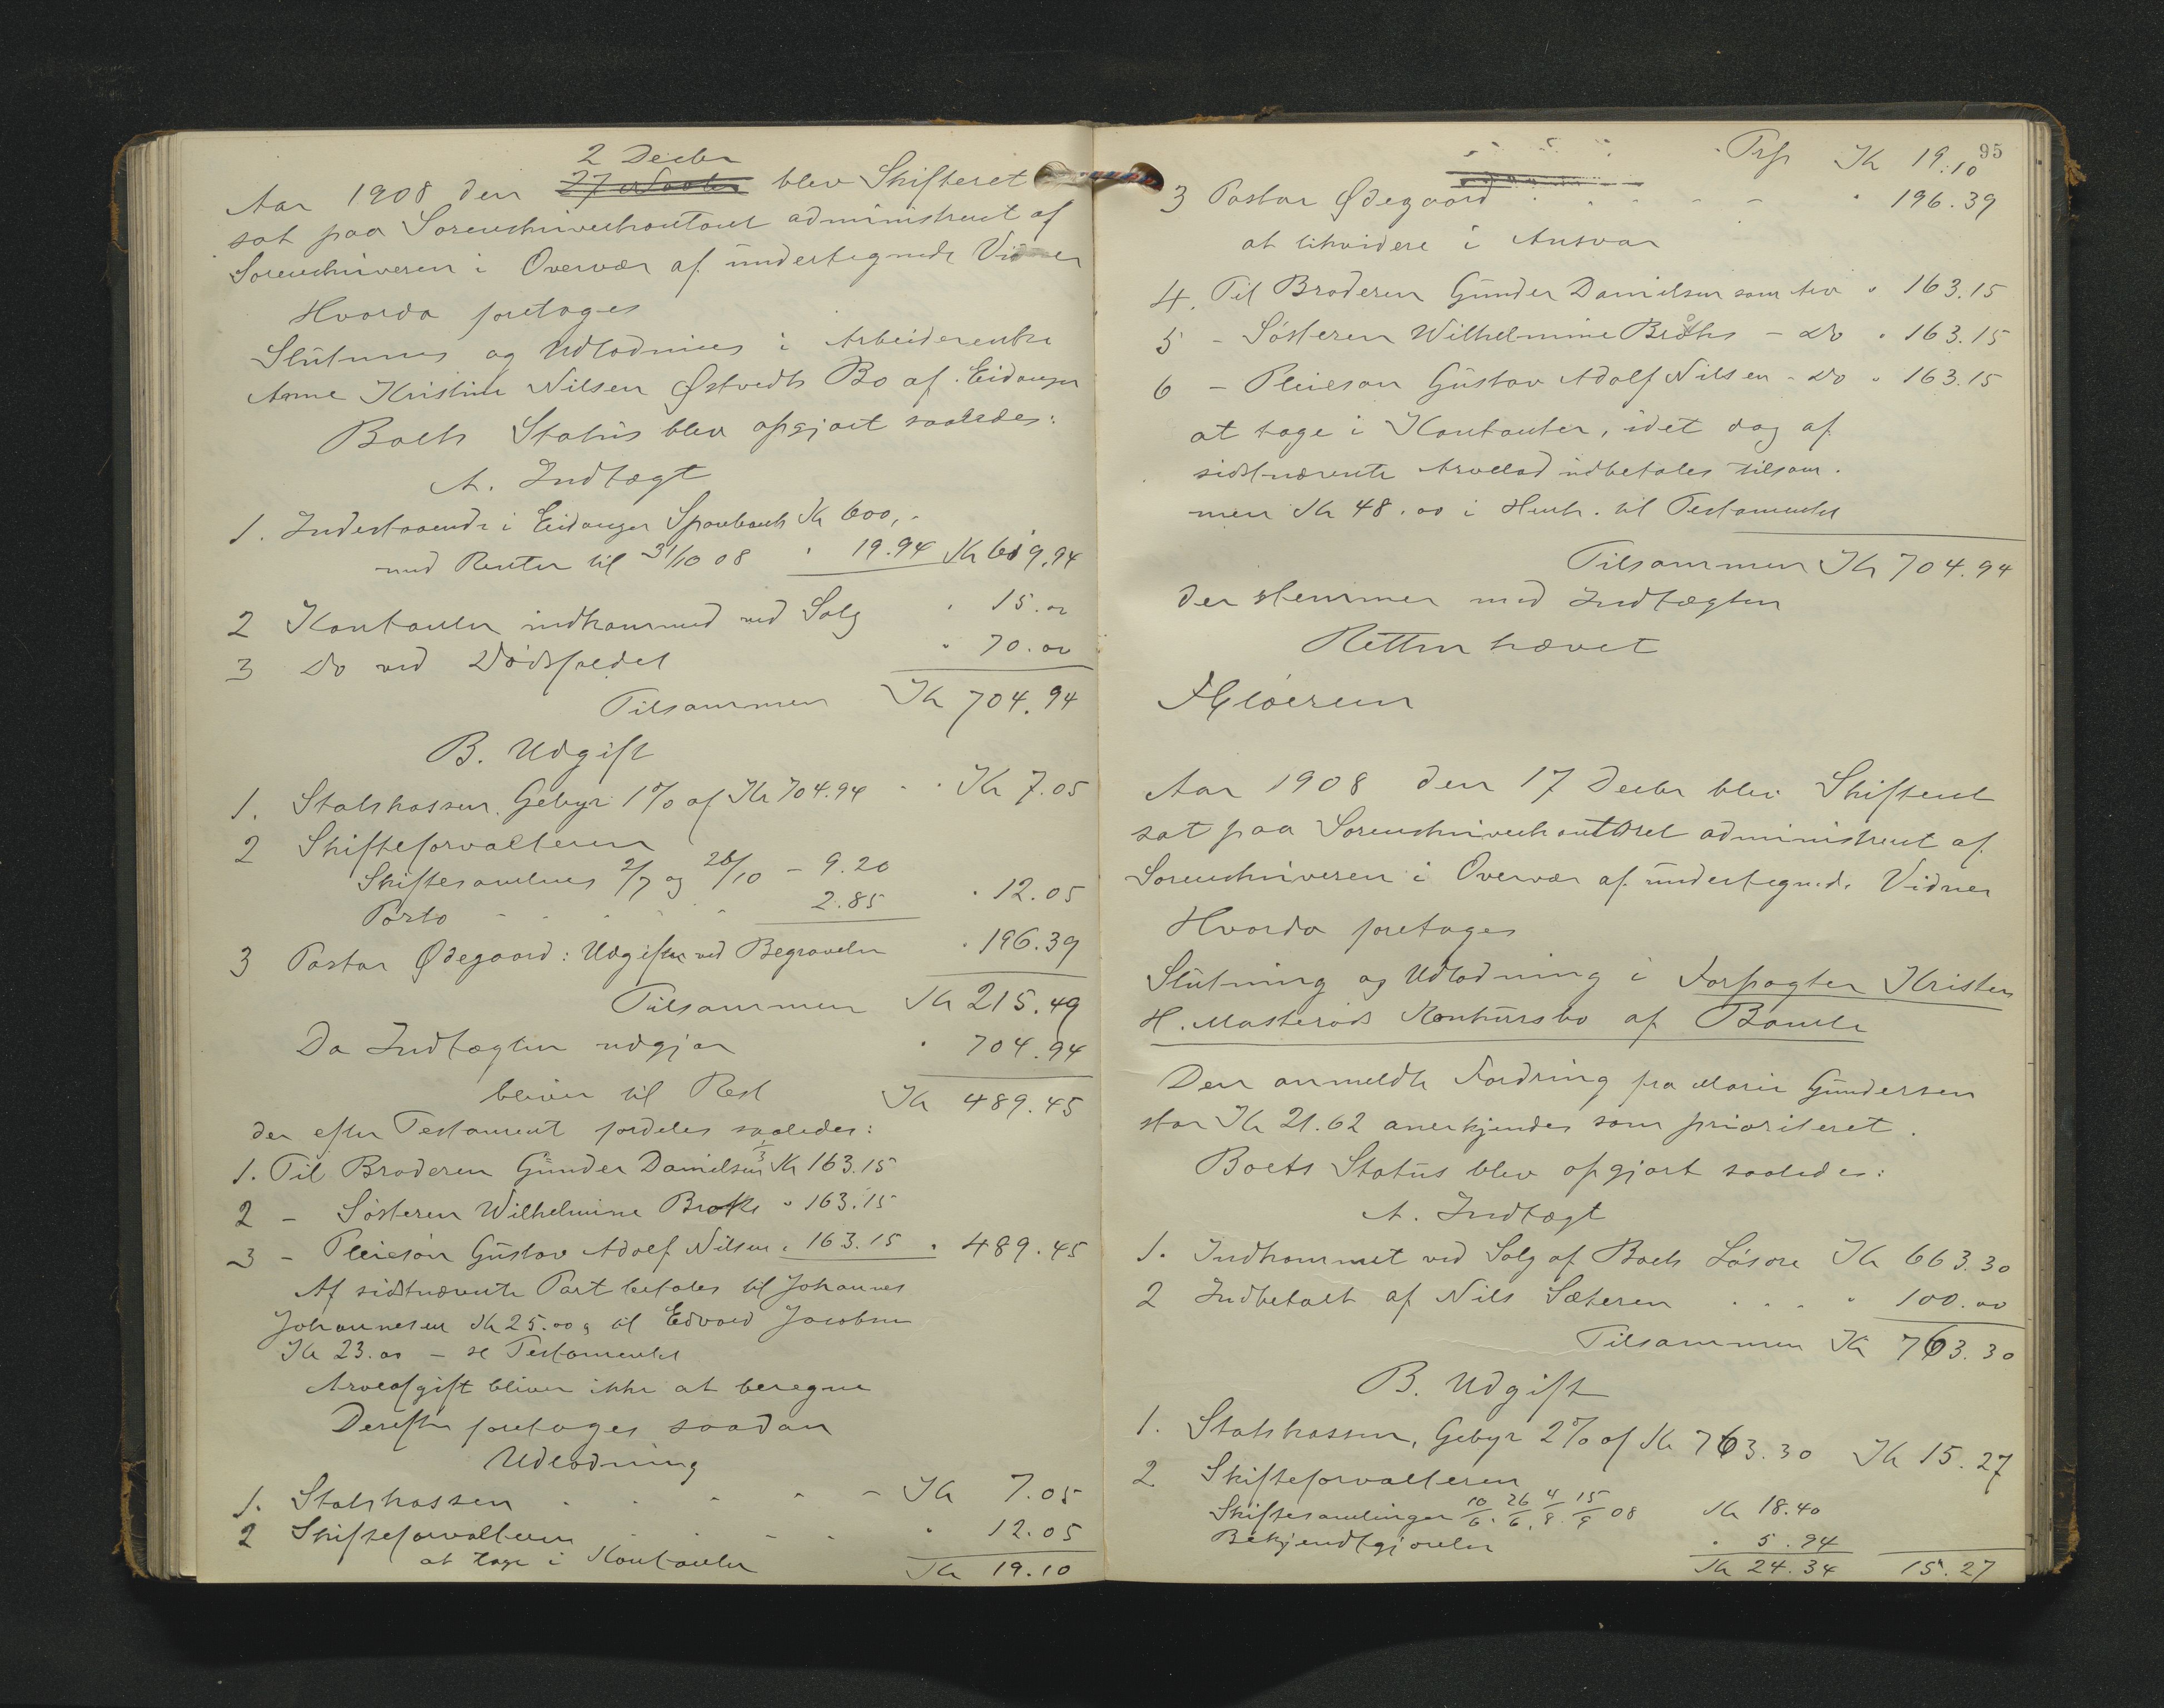 2 Decbr
Aar 1908 den 27 Novbr blev Skifteret
sat paa Sorenskriverkontoret administreret af
Sorenskriveren i Overvær af undertegnede Vidner
Hvorda foretoges
Slutning og Udlodning i Arbeiderenke
Anne Kristine Nilsen Østvedts Bo af Eidanger
Boets Status blev opgjort saaledes:
A. Indtægt
1. Indestaaende i Eidanger Sparebank Kr 600,-
med Renter til 31/10 08 " 19.94 Kr 619.94
2 Kontanter indkommed ved Salg " 15.00
3 Do ved Dødsfaldet " 70.00
Tilsammen Kr 704.94
B. Udgift
1. Statskassen, Gebyr 1% af Kr 704.94 - - Kr 7.05
2 Skifteforvalteren
Skiftesamlinger 2/7 og 26/10 - 9.20
Porto - - - - - 2.85 " 12.05
3 Pastor Ødegaard: Udgifter ved Begravelsen " 196.39
Tilsammen Kr 215.49
Da Indtægten udgjør " 704.94
bliver til Rest Kr 489.45
der efter Testament fordeles saaledes:
1. Til Broderen Gunder Danielsen 1/3 Kr 163.15
2 - Søsteren Wilhelmine Broke " 163.15
3 - Pleiesøn Gustav Adolf Nilsen " 163.15 " 489.45
Af sidstnævnte Part betales til Johannes
Johannesen Kr 25.00 og til Edvard Jacobsen
Kr 23.00 - se Testamentet
Arveafgift bliver ikke at beregne
Derefter foretoges saadan
Udlodning
1. Statskassen - - - - - Kr 7.05
2 Skifteforvalteren - - - - " 12.05
at tage i Kontanter Kr 19.10
95
Trsp Kr 19.10
3 Pastor Ødegaard - - - - - " 196.39
at likvidere i Ansvar
4. Til Broderen Gunder Danielsen som Arv " 163.15
5 - Søsteren Wilhelmine Broke - Do " 163.15
6 - Pleiesøn Gustav Adolf Nilsen - Do " 163.15
at tage i Kontanter, idet dog af
sidstnævnte Arvelod udbetales tilsam-
men Kr 48.00 i Henh. til Testamentet
Tilsammen Kr 704.94
der stemmer med Indtægten
Retten hævet
Aar 1908 den 17 Decbr blev Skifteret
sat paa Sorenskriverkontoret administreret af
Sorenskriveren i Overvær af undertegnede Vidner
Hvorda foretoges
Slutning og Udlodning i Forpagter Kristen
H. Masterøds Konkursbo af Bamble
Den anmeldte Fordring fra Maria Gundersen
stor Kr 21.62 anerkjendes som prioriteret.
Boets Status blev opgjort saaledes:
A. Indtægt
1. Indkommet ved Salg af Boets Løsøre Kr 663.30
2 Indbetalt af Nils Sæteren - - - " 100.00
Tilsammen Kr 763.30
B. Udgift
1. Statskassen, Gebyr 2% af Kr 763.30 Kr 15.27
2 Skifteforvalteren
Skiftesamlinger 10/6. 26/6, 4/8. 15/9 08 Kr 18.40
Bekjendtgjørelser " 5.94
Kr 24.34 15.27